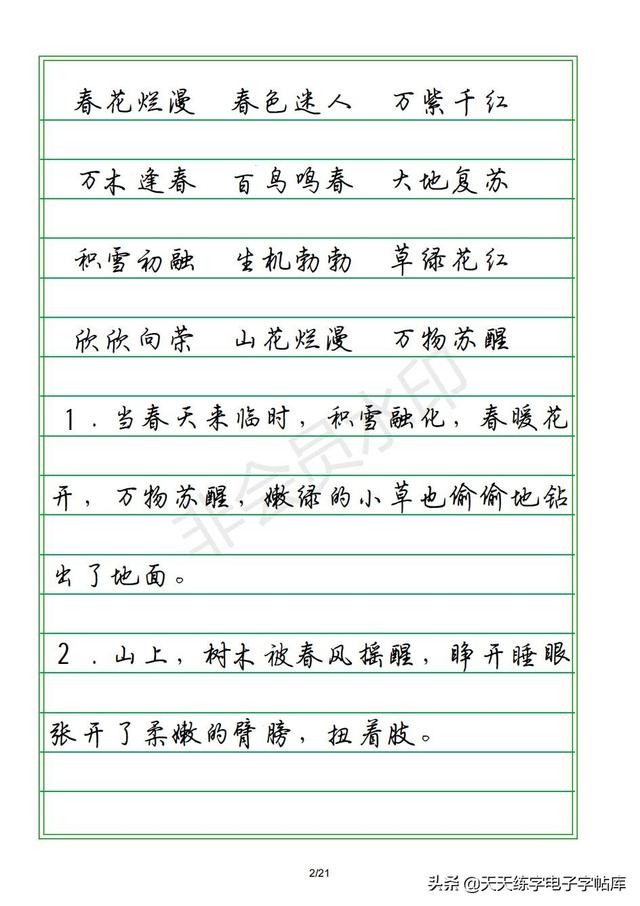 春花烂漫 春色迷人 万紫千红
万木逢春 百鸟鸣春 大地复苏
积雪初融 生机勃勃 草绿花红
欣欣向荣 山花烂漫 万物苏醒
1.当春天来临时,积雪融化,春暖花
开,万物苏醒,嫩绿的小草也偷偷地钻
出了地面。
2.山上,树木被春风摇醒,睁开睡眼
张开了柔嫩的臂膀,扭着肢。
非会员水印
2/21
头条@天天练字电子字帖库